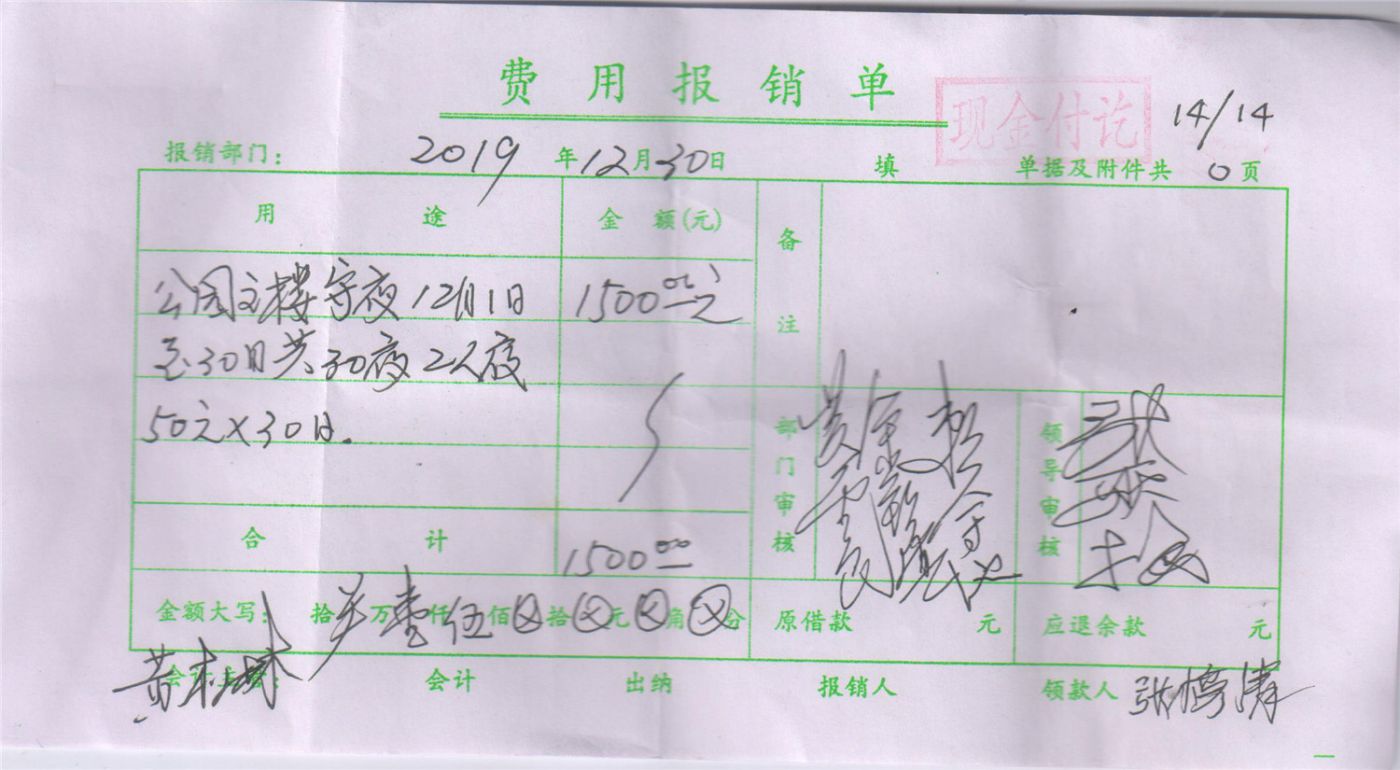 费用报销单
现金付讫
14/14
报销部门： 2019年12月30日 填 单据及附件共 0 页
用途 金额(元) 备注
公园主楼守夜12月1日 1500.00元
至30日共30夜2人夜
50元×30日.
部门审核 领导审核
合计 1500.00
金额大写： 拾 万壹仟伍佰⊗拾⊗元⊗角⊗分 原借款 元 应退余款 元
会计 出纳 报销人 领款人